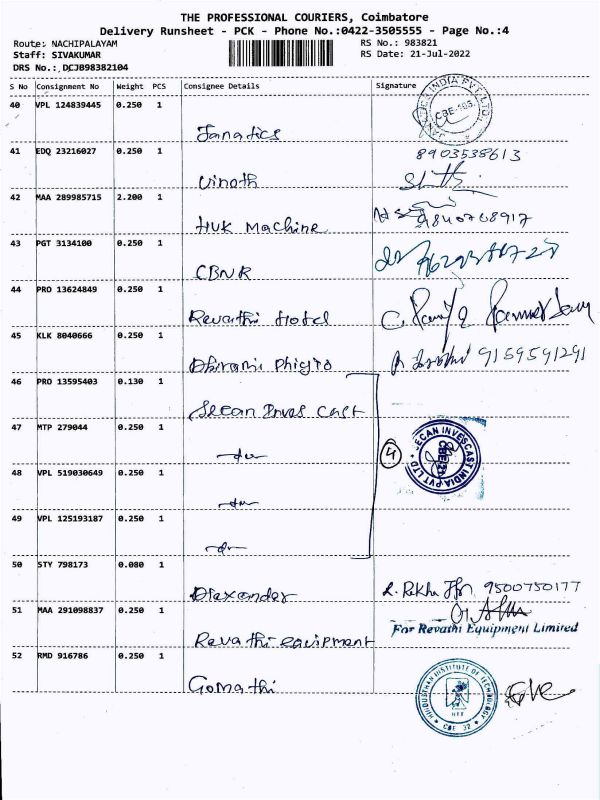 THE PROFESSIONAL COURIERS, Coimbatore
Delivery Runsheet - PCK - Phone No.:0422-3505555 - Page No.:4
Route: NACHIPALAYAM
RS No.: 983821
Staff: SIVAKUMAR
RS Date: 21-Jul-2022
DRS No.: DCJ098382104
S No Consignment No Weight PCS Consignee Details Signature
40 VPL 124839445 0.250 1
Janatics
41 EDQ 23216027 0.250 1 8903538613
Vinoth
42 MAA 289985715 2.200 1
HUK Machine
43 PGT 3134100 0.250 1
CBNR
44 PRO 13624849 0.250 1
Revathi Hotel
45 KLK 8040666 0.250 1 9159591291
46 PRO 13595403 0.130 1
Secan Inves Cast
47 MTP 279044 0.250 1
SECAN INVESCAST INDIA PVT LTD
4
48 VPL 519030649 0.250 1
49 VPL 125193187 0.250 1
50 STY 798173 0.080 1
Alexander
9500750177
51 MAA 291098837 0.250 1
For Revathi Equipment Limited
Revathi equipment
52 RMD 916786 0.250 1
Gomathi
HINDUSTHAN INSTITUTE OF TECHNOLOGY
CBE 32